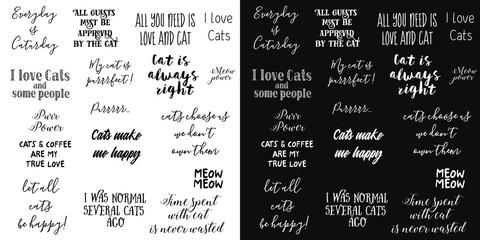 Everyday
is
Caturday
ALL GUESTS
MUST BE
APPROVED
BY THE CAT
ALL YOU NEED IS
LOVE AND CAT
I love
Cats
I love Cats
and
some people
My cat is
purrrfect!
Cat is
always
right
Meow
power
Purr
Power
Purrrrr...
cats choose us
we don't
own them
CATS & COFFEE
ARE MY
TRUE LOVE
Cats make
me happy
MEOW
MEOW
let all
cats
be happy!
I WAS NORMAL
SEVERAL CATS
AGO
Time spent
with cat
is never wasted
Everyday
is
Caturday
ALL GUESTS
MUST BE
APPROVED
BY THE CAT
ALL YOU NEED IS
LOVE AND CAT
I love
Cats
I love Cats
and
some people
My cat is
purrrfect!
Cat is
always
right
Meow
power
Purr
Power
Purrrrr...
cats choose us
we don't
own them
CATS & COFFEE
ARE MY
TRUE LOVE
Cats make
me happy
MEOW
MEOW
let all
cats
be happy!
I WAS NORMAL
SEVERAL CATS
AGO
Time spent
with cat
is never wasted